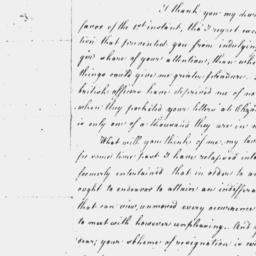 I thank you my dear
favor of the 1st instant, tho' I regret
tion that prevented you from indulging
your share of your attentions, than which
things could give me greater pleasure.
british officers have deprived me of
when they prohibited your letters at Eliza
is only one of a thousand they are in
What will you think of me, my
for some time past I have relapsed into
formerly entertained that in order to
ought to endeavor to attain an indiffera
that can view unmoved every occurrence
to meet with however unpleasing. And
ever, your scheme of resignation is